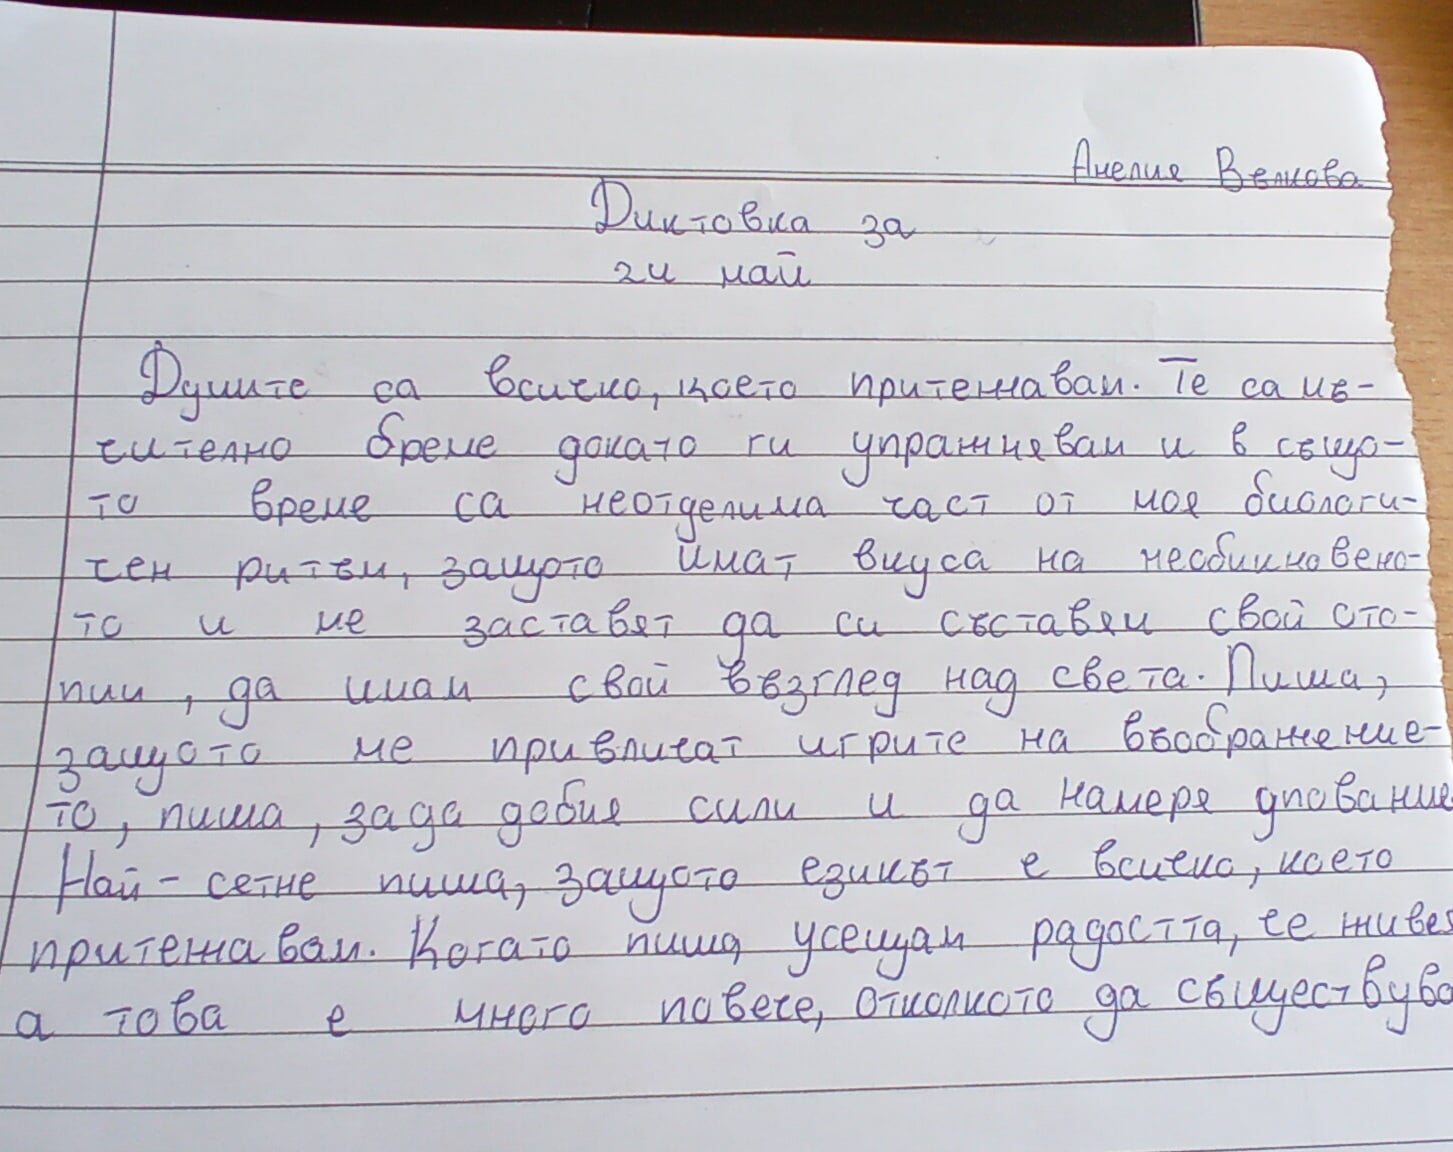 Анелия Велкова
Диктовка за
24 май
Думите са всичко, което притежавам. Те са мъ-
чително бреме докато ги упражнявам и в също-
то време са неотделима част от моя биологи-
чен ритъм, защото имат вкуса на необикновено-
то и ме заставят да си съставям свой сто-
пии, да имам свой възглед над света. Пиша,
защото ме привличат игрите на въображение-
то, пиша, за да добия сили и да намеря упование
Най-сетне пиша, защото езикът е всичко, което
притежавам. Когато пиша, усещам радостта, че живея
а това е много повече, отколкото да съществува